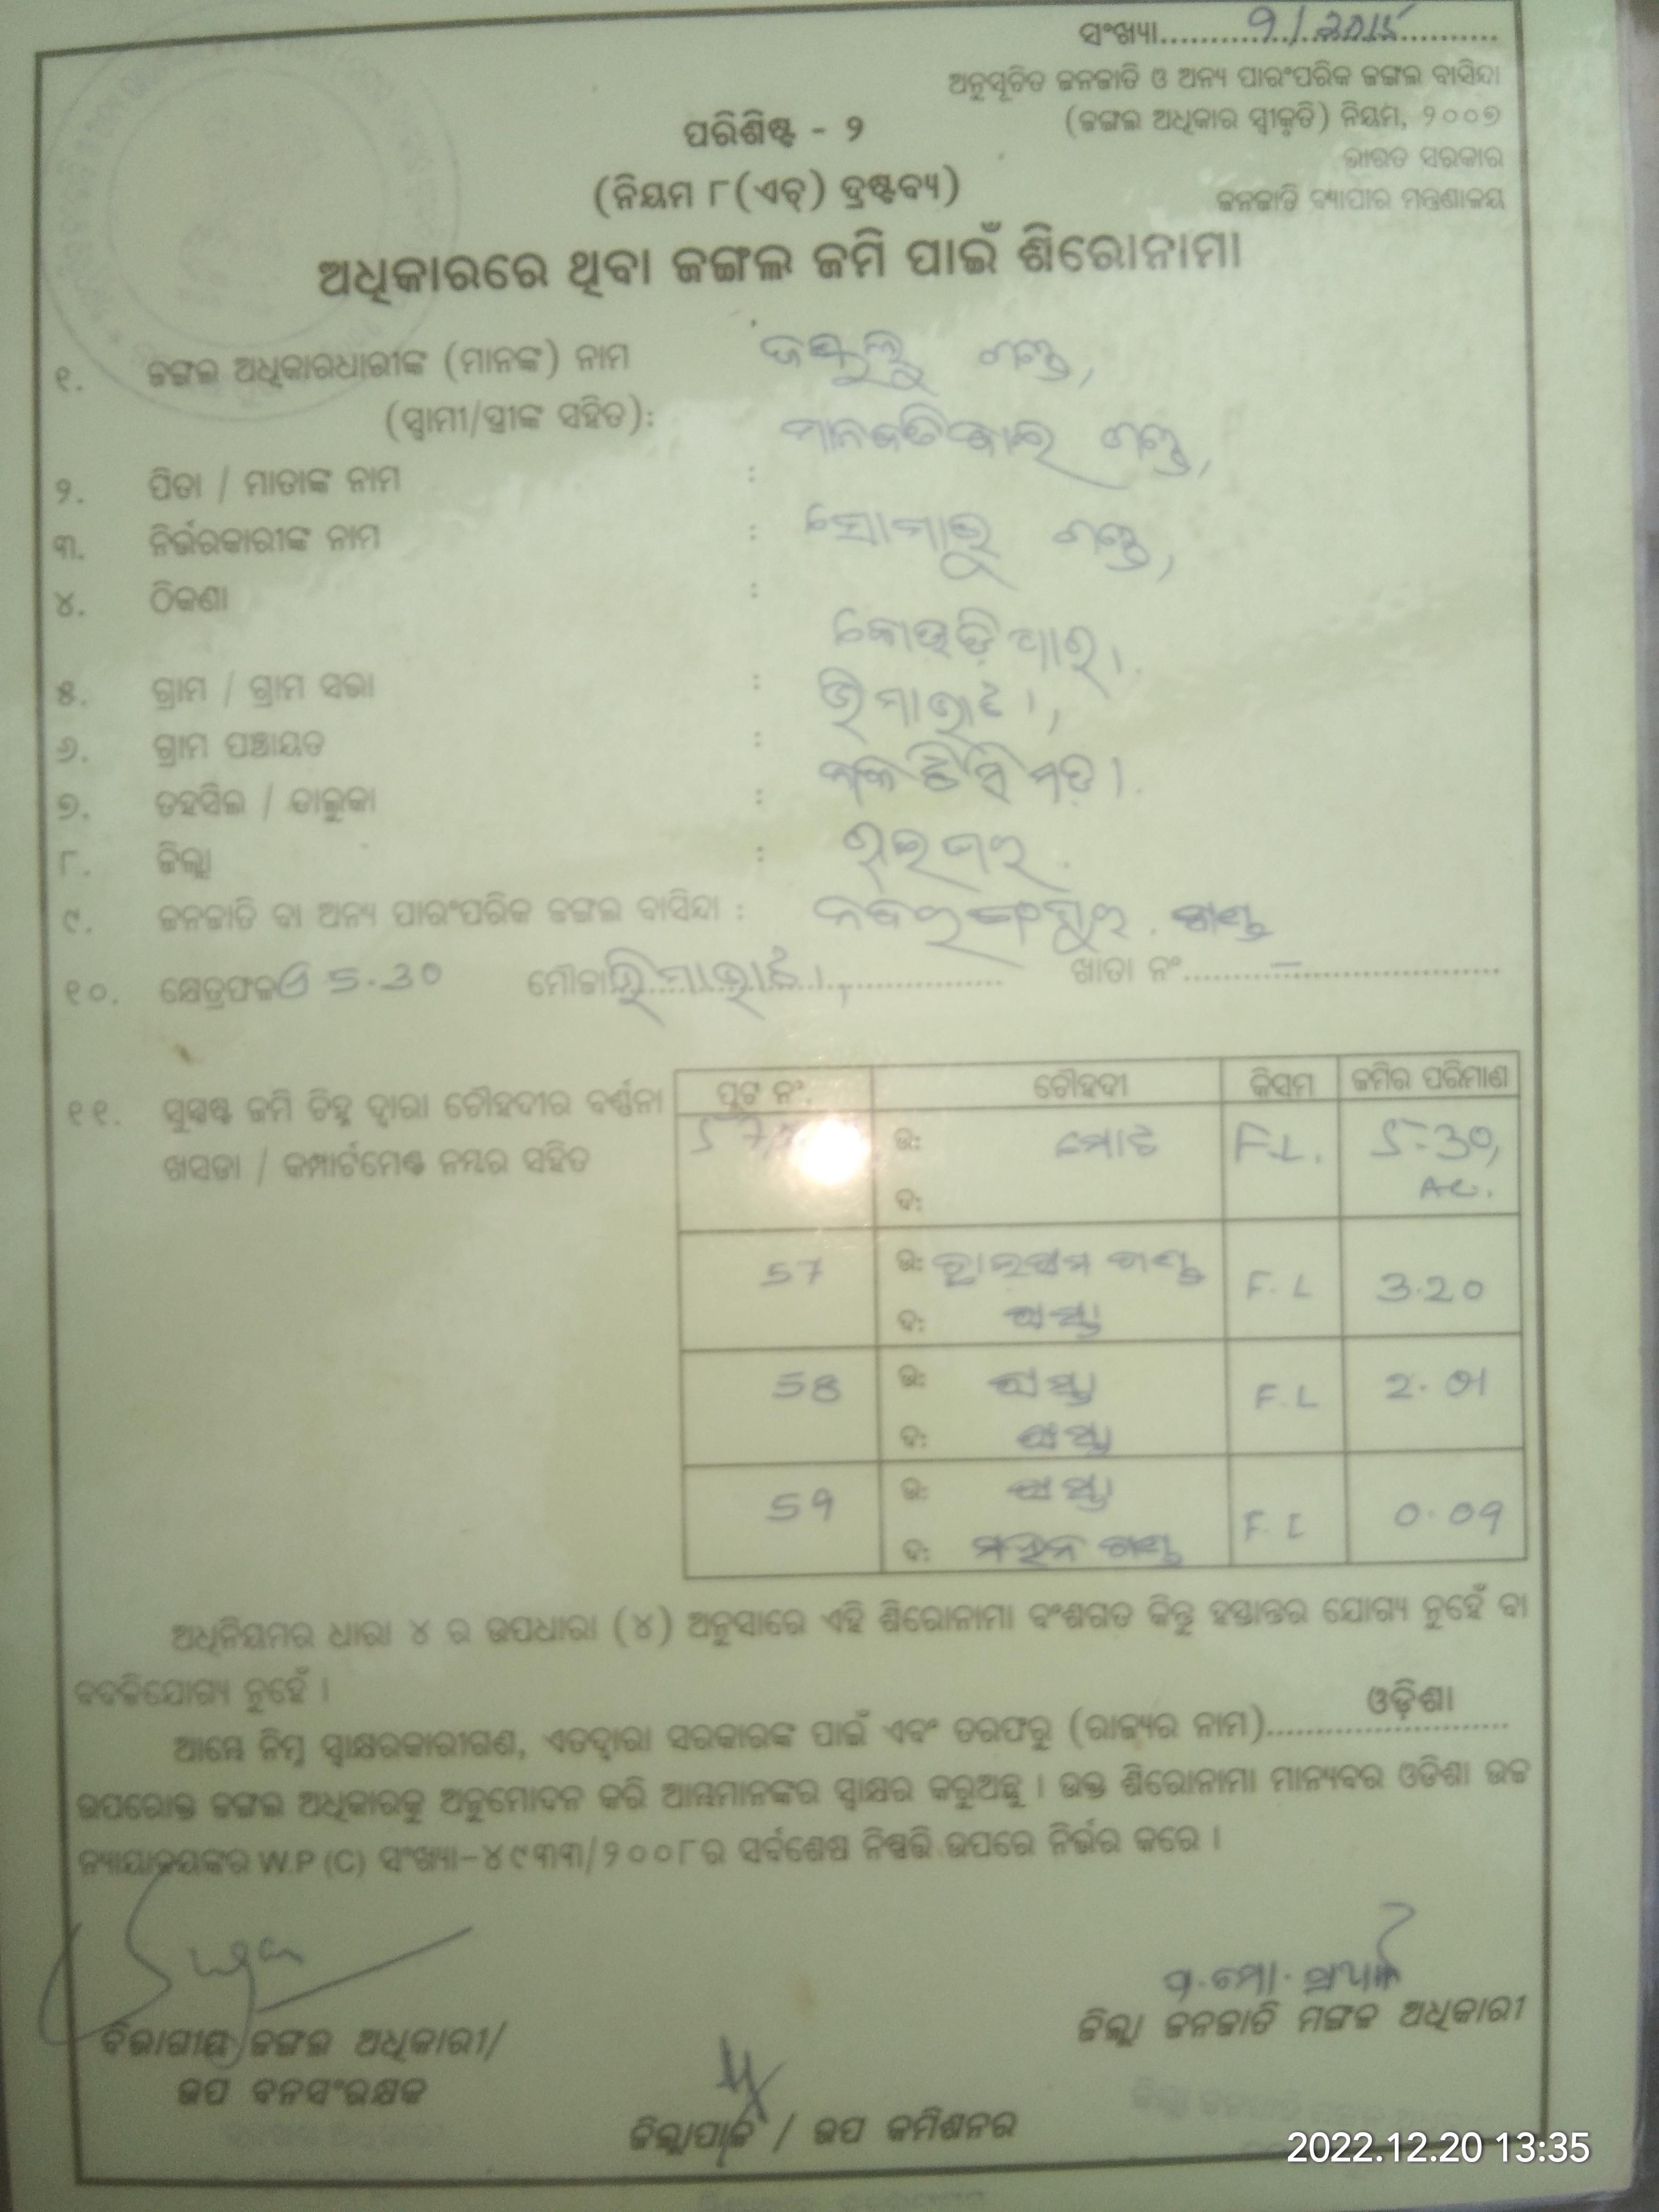 ସଂଖ୍ୟା..............9/2015..............
ଅନୁସୂଚିତ ଜନଜାତି ଓ ଅନ୍ୟ ପାରଂପରିକ ଜଙ୍ଗଲ ବାସିନ୍ଦା
(ଜଙ୍ଗଲ ଅଧିକାର ସ୍ୱୀକୃତି) ନିୟମ, ୨୦୦୭
ଭାରତ ସରକାର
ଜନଜାତି ବ୍ୟାପାର ମନ୍ତ୍ରଣାଳୟ
ପରିଶିଷ୍ଟ - ୨
(ନିୟମ ୮(ଏଚ୍) ଦ୍ରଷ୍ଟବ୍ୟ)
ଅଧିକାରରେ ଥିବା ଜଙ୍ଗଲ ଜମି ପାଇଁ ଶିରୋନାମା
୧. ଜଙ୍ଗଲ ଅଧିକାରଧାରୀଙ୍କ (ମାନଙ୍କ) ନାମ ଗଣ୍ଡ,
(ସ୍ୱାମୀ/ସ୍ତ୍ରୀଙ୍କ ସହିତ): ଗଣ୍ଡ,
୨. ପିତା / ମାତାଙ୍କ ନାମ :
୩. ନିର୍ଭରକାରୀଙ୍କ ନାମ : ସୋମାରୁ ଗଣ୍ଡ,
୪. ଠିକଣା :
୫. ଗ୍ରାମ / ଗ୍ରାମ ସଭା :
୬. ଗ୍ରାମ ପଞ୍ଚାୟତ :
୭. ତହସିଲ / ତାଲୁକା :
୮. ଜିଲ୍ଲା : ରାଇଘର
୯. ଜନଜାତି ବା ଅନ୍ୟ ପାରଂପରିକ ଜଙ୍ଗଲ ବାସିନ୍ଦା : ନବରଙ୍ଗପୁର. ଗଣ୍ଡ
୧୦. କ୍ଷେତ୍ରଫଳ 5.30 ମୌଜା.............................. ଖାତା ନଂ.........–....................
୧୧. ସୁସ୍ପଷ୍ଟ ଜମି ଚିହ୍ନ ଦ୍ୱାରା ଚୌହଦୀର ବର୍ଣ୍ଣନା
ଖସଡା / କମ୍ପାର୍ଟମେଣ୍ଟ ନମ୍ବର ସହିତ
ପ୍ଲଟ ନଂ. ଚୌହଦୀ କିସମ ଜମିର ପରିମାଣ
ଉ: ମୋଟ F.L. 5-30,
ଦ: Ac.
57 ଉ: ଗଣ୍ଡ F.L 3.20
ଦ:
58 ଉ: F.L 2.01
ଦ:
59 ଉ: F.L 0.09
ଦ: ଗଣ୍ଡ
ଅଧିନିୟମର ଧାରା ୪ ର ଉପଧାରା (୪) ଅନୁସାରେ ଏହି ଶିରୋନାମା ବଂଶଗତ କିନ୍ତୁ ହସ୍ତାନ୍ତର ଯୋଗ୍ୟ ନୁହେଁ ବା
ବଦଳିଯୋଗ୍ୟ ନୁହେଁ ।
ଆମ୍ଭେ ନିମ୍ନ ସ୍ୱାକ୍ଷରକାରୀଗଣ, ଏତଦ୍ୱାରା ସରକାରଙ୍କ ପାଇଁ ଏବଂ ତରଫରୁ (ରାଜ୍ୟର ନାମ)..........ଓଡ଼ିଶା..........
ଉପରୋକ୍ତ ଜଙ୍ଗଲ ଅଧିକାରକୁ ଅନୁମୋଦନ କରି ଆମ୍ଭମାନଙ୍କର ସ୍ୱାକ୍ଷର କରୁଅଛୁ । ଉକ୍ତ ଶିରୋନାମା ମାନ୍ୟବର ଓଡିଶା ଉଚ୍ଚ
ନ୍ୟାୟାଳୟଙ୍କର W.P (C) ସଂଖ୍ୟା-୪୯୩୩/୨୦୦୮ର ସର୍ବଶେଷ ନିଷ୍ପତ୍ତି ଉପରେ ନିର୍ଭର କରେ ।
ବିଭାଗୀୟ ଜଙ୍ଗଲ ଅଧିକାରୀ/
ଉପ ବନସଂରକ୍ଷକ
ଜିଲ୍ଲାପାଳ / ଉପ କମିଶନର
ଜିଲ୍ଲା ଜନଜାତି ମଙ୍ଗଳ ଅଧିକାରୀ
2022.12.20 13:35